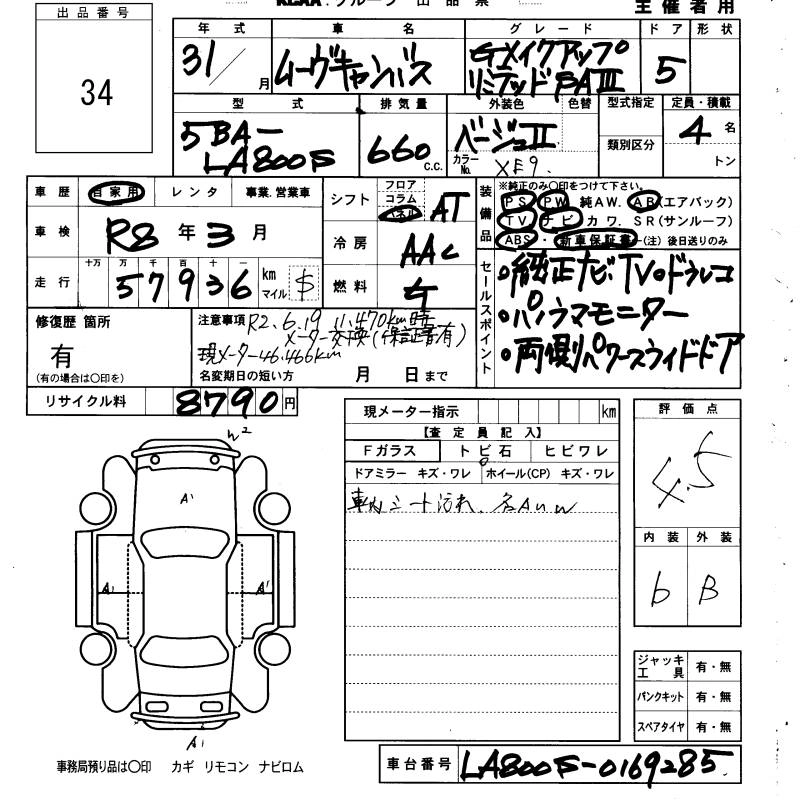 KCAA.グループ 出品票
主催者用
出品番号
34
年式 車名 グレード ドア 形状
31/ 月 ムーヴキャンバス Gメイクアップリミテッド SAⅢ 5
型式 排気量 外装色 色替 型式指定 定員・積載
5BA-LA800S 660 C.C. ベージュⅡ 類別区分 4 名
カラーNo. XE9. トン
車歴 自家用 レンタ 事業.営業車
シフト フロア コラム パネル AT
装備品 ※純正のみ○印をつけて下さい。
PS PW 純AW. AB(エアバック)
TV ナビ カワ. SR(サンルーフ)
ABS・新車保証書-(注)後日送りのみ
車検 R8 年 3 月
冷房 AAC
走行 十万 万 千 百 十 一 57936 km マイル $
燃料 ガ
セールスポイント
・純正ナビTV・ドラレコ
・パノラマモニター
・両側パワースライドドア
修復歴 箇所
有
(有の場合は○印を)
注意事項 R2.6.19 11,470km時
メーター交換(保証書有)
現メーター46,466km
名変期日の短い方 月 日まで
リサイクル料 8790 円
現メーター指示 km
評価点
4.5
【査定員記入】
Fガラス トビ石 ヒビワレ
ドアミラー キズ・ワレ ホイール(CP) キズ・ワレ
車内シート汚れ、各AUW
W2
A1
A1 A1
A1
内装 外装
b B
ジャッキ工具 有・無
パンクキット 有・無
スペアタイヤ 有・無
事務局預り品は○印 カギ リモコン ナビロム
車台番号 LA800S-0169285